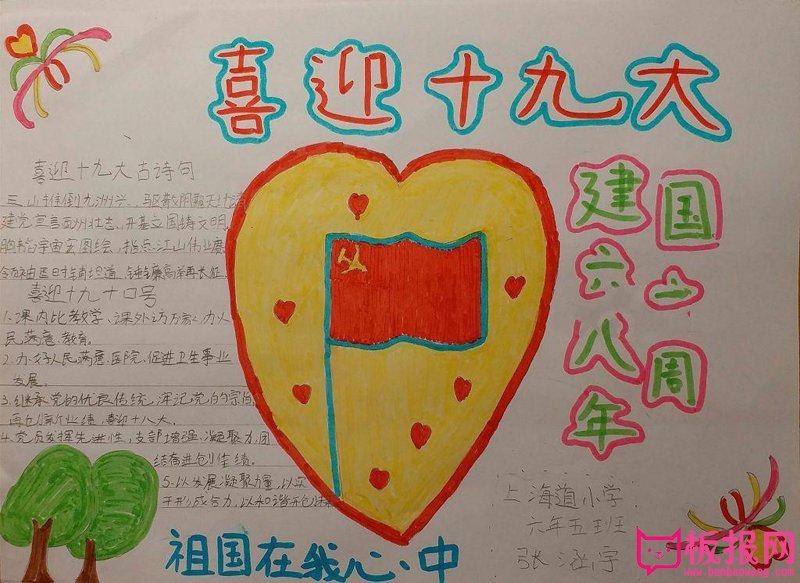 喜迎十九大
建国六八年
国一周
喜迎十九大古诗句
三山推倒九洲兴,驱散阴霾天
建党宣言西洲壮志,开基立国铸文明
胸怀宇宙宏图绘,指点江山伟业
喜迎十九大口号
1.课内比教学、课外访万家,办人
民满意教育。
2.办好人民满意医院,促进卫生事业
发展。
3.继承党的优良传统,牢记党的宗旨
再创新业绩,喜迎十八大。
4.党员发挥先进性,支部增强凝聚力,团
结奋进创佳绩。
5.以发展凝聚力量,以
形成合力,以和谐
祖国在我心中
上海道小学
六年五班
张
板报网
www.banbaowang.com